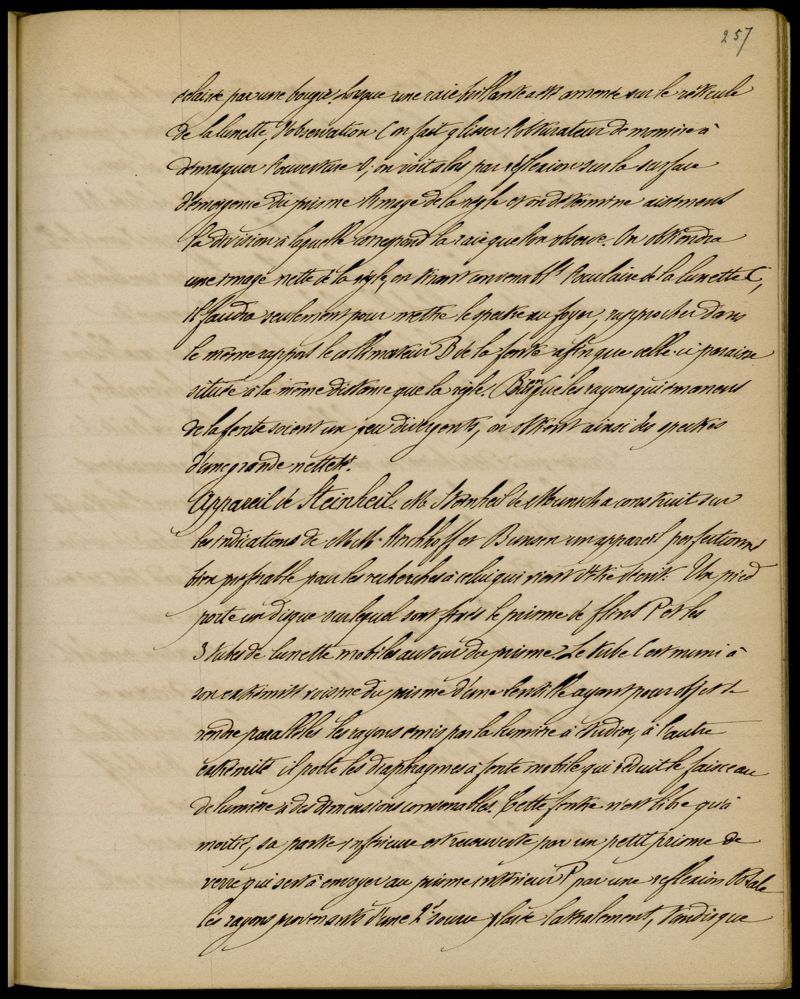 257
éclairée par une bougie. Lorsque une raie brillante a été amenée sur le réticule
de la lunette d'observation C on fait glisser l'obturateur de manière à
démasquer l'ouverture O; on voit alors par réflexion sur la surface
d'émergence du prisme l'image de la règle et on détermine aisément
la division à laquelle correspond la raie que l'on observe. On obtiendra
une image nette de la règle, en tirant convenablt l'oculaire de la lunette C,
il faudra seulement pour mettre le spectre au foyer, rapprocher dans
le même rapport le collimateur B de la fente afin que celle-ci paraisse
située à la même distance que la règle. Bien que les rayons qui émanent
de la fente soient un peu divergents, on obtient ainsi des spectres
d'une grande netteté.
Appareil de Steinheil. Mr Steinheil de Munich a construit sur
les indications de M.M. Kirchhoff et Bunsen un appareil perfectionné
bien préférable pour les recherches à celui qui vient d'être décrit. Un pied
porte un disque sur lequel sont fixés le prisme de flint P et les
3 tubes de lunette mobiles autour du prisme. Le tube C est muni à
son extrémité voisine du prisme d'une lentille ayant pour objet de
rendre parallèles les rayons émis par la lumière à étudier, à l'autre
extrémité il porte les diaphragmes à fente mobile qui réduit le faisceau
de lumière à des dimensions convenables. Cette fente n'est libre qu'à
moitié, sa partie inférieure est recouverte par un petit prisme de
verre qui sert à envoyer au prisme intérieur P par une réflexion totale
les rayons provenants d'une 2e source placée latéralement, tandis que